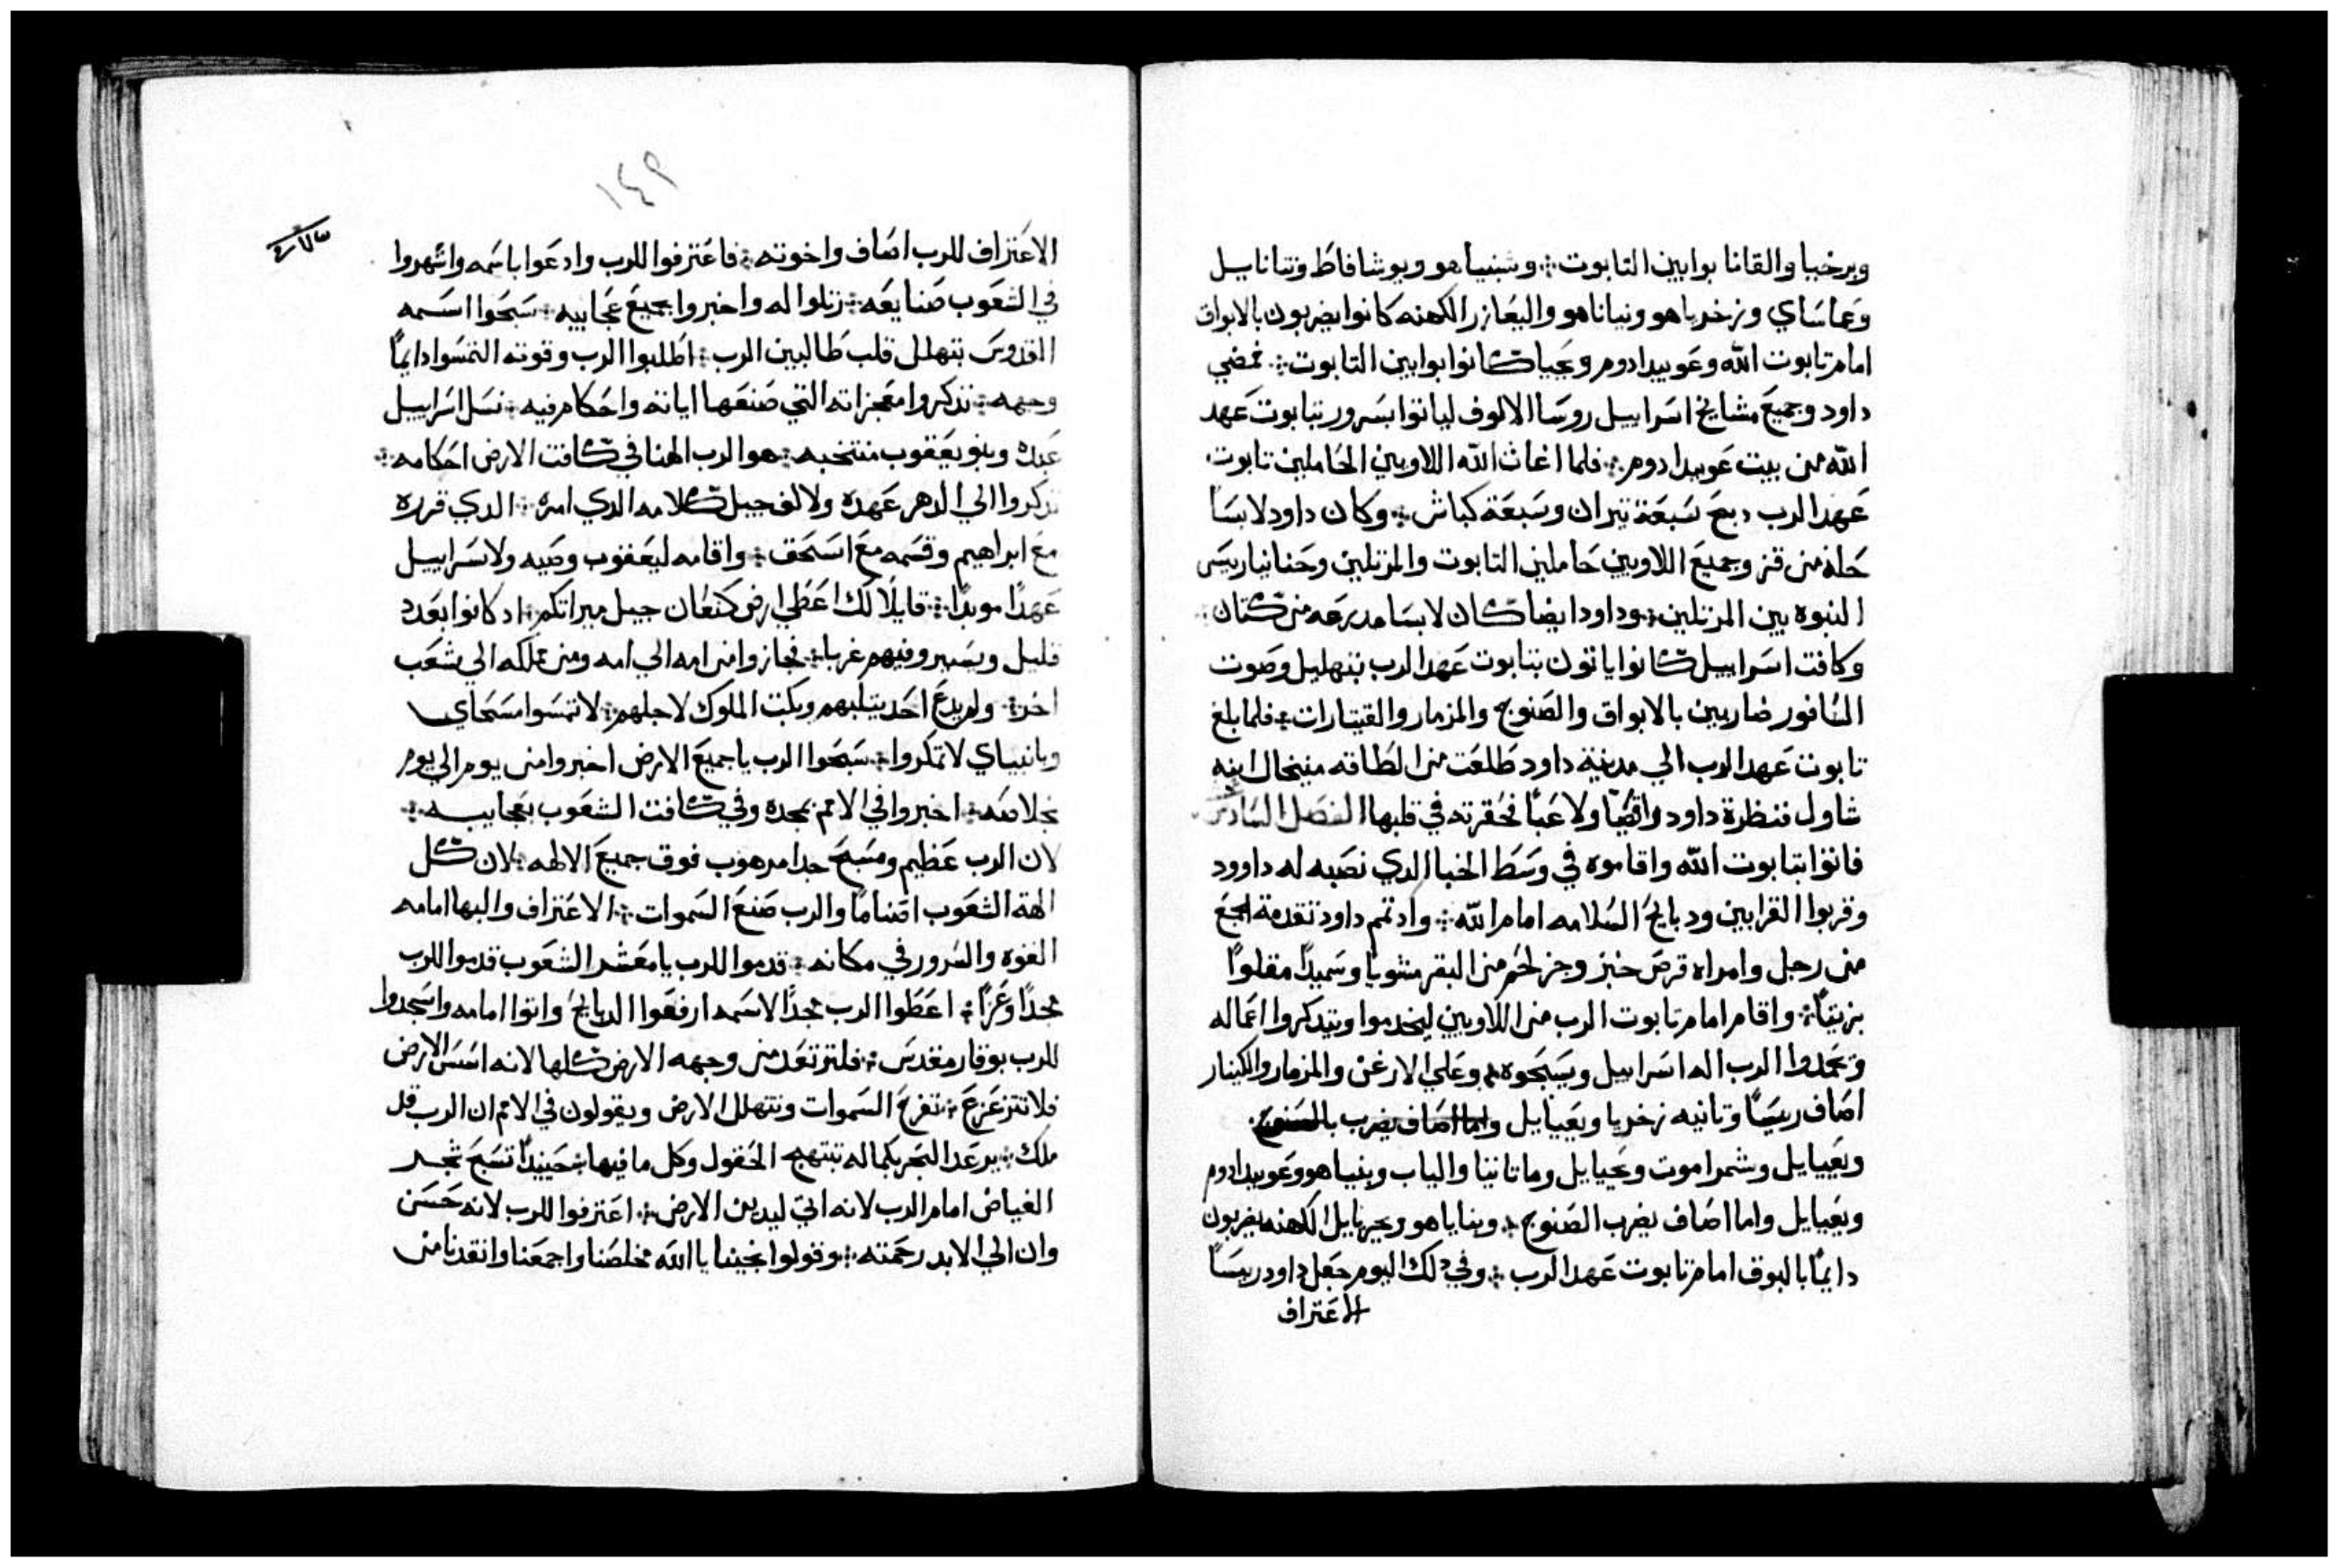 وبرخيا والقانا بوابين التابوت ؞ وشبنيا هو ويوشافاط ونتاناييل
وعماساي وزخريا هو ونياناهو واليعازر الكهنه كانوا يضربون بالابواق
امام تابوت الله وعوبيدادوم ويحيا كانوا بوابين التابوت ؞ فمضي
داود وجميع مشايخ اسراييل روسا الالوف لياتوا بسرور بتابوت عهد
الله من بيت عوبيدادوم ؞ فلما اغاث الله اللاويين الحاملين تابوت
عهد الرب دبح سبعة تيران وسبعة كباش ؞ وكان داود لابسًا
حلة من قز وجميع اللاويين حاملين التابوت والمرتلين وحنانيا رييس
النبوه بين المرتلين ؞ وداود ايضا كان لابسا مدرعه من كتان ؞
وكافت اسراييل كانوا ياتون بتابوت عهد الرب بتهليل وصوت
السافور ضاربين بالابواق والصنوج والمزمار والقيتارات ؞ فلما بلغ
تابوت عهد الرب الي مدينة داود طلعت من الطاقه ميخال ابنه
شاول فنظرة داود راقصًا ولاعبًا فحقرته في قلبها الفصل السادس
فاتوا بتابوت الله واقاموه في وسط الخبا الدي نصبه له داوود
وقربوا القرابين ودبايح السلامه امام الله ؞ واد تمم داود تقدمة
من رجل وامراه قرص خبز وجز لحم من البقر مشويا وسميدًا مقلوًا
بزيتٍ ؞ واقام امام تابوت الرب من اللاويين ليخدموا ويتدكروا اعماله
ويمجدوا الرب اله اسراييل ويسبحوه وعلي الارغن والمزمار والكينار
اصاف رييسًا وتانيه زخريا ويعيياييل واما اصاف يضرب بالصنوج
ويعيياييل وشمراموت ويحياييل وماتاتيا والياب وبنياهو وعوبيدادوم
ويعياييل واما اصاف يضرب الصنوج ؞ وبناياهو ويحزياييل الكهنه يضربون
دايمًا بالبوق امام تابوت عهد الرب ؞ وفي دلك اليوم جعل داود رييسًا
الاعتراف
١٤٩
الاعتراف للرب اصاف واخوته ؞ فاعترفوا للرب وادعوا باسمه واشهروا
في الشعوب صنايعه ؞ رتلوا له واخبروا بجميع عجاييبه ؞ سبحوا اسمه
القدوس يتهلل قلب طالبين الرب ؞ اطلبوا الرب وقوته التمسوا دايمًا
وجهه ؞ تدكروا معجزاته التي صنعها اياته واحكام فيه ؞ نسل اسراييل
عبده وبنو يعقوب منتخبه ؞ هو الرب الهنا في كافت الارض احكامه ؞
تدكروا الي الدهر عهده ولالف جيل كلامه الدي امره ؞ الدي قرره
مع ابراهيم وقسمه مع اسحق ؞ واقامه ليعقوب وصيه ولاسراييل
عهدًا موبدًا ؞ قايلًا لك اعطي ارض كنعان حبل ميراتكم ؞ اد كانوا بعدد
قليل ويسير وفيهم غربا ؞ فجازوا من امه الي امه ومن مملكه الي شعب
اخر ؞ ولم يدع احد يتلبهم وبكت الملوك لاجلهم ؞ لا تمسوا مسحاي
وبانبياي لا تمكروا ؞ سبحوا الرب يا جميع الارض اخبروا من يوم الي يوم
بخلاصه ؞ اخبروا في الامم بمجده وفي كافت الشعوب بعجاييبه ؞
لان الرب عظيم ومسبح جدا مرهوب فوق جميع الالهه ؞ لان كل
الهة الشعوب اصنامًا والرب صنع السموات ؞ الاعتراف والبها امامه
القوه والسرور في مكانه ؞ قدموا للرب يا معشر الشعوب قدموا للرب
مجدًا وعزًا ؞ اعطوا الرب مجدًا لاسمه ارفعوا الدبايح واتوا امامه واسجدوا
للرب بوقار مقدس ؞ فلترتعد من وجهه الارض كلها لانه اسس الارض
فلا تتزعزع ؞ تفرح السموات وتتهلل الارض ويقولون في الامم ان الرب قد
ملك ؞ يرعد البحر بكماله تبتهج الحقول وكل ما فيها ؞ حينيدًا تسبح شجر
الغياض امام الرب لانه اتي ليدين الارض ؞ اعترفوا للرب لانه حسن
وان الي الابد رحمته ؞ وقولوا نجينا يا الله مخلصنا واجمعنا وانقدنا من